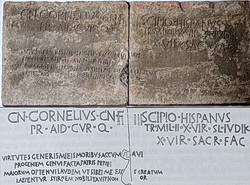 CN·CORNELIVS·CN·F SCIPIO·HISPANVS
PR·AID·CVR·Q TR·MIL·II·X·VIR·SL·IVDIK
X·VIR·SACR·FAC
CN·CORNELIVS·CN·F SCIPIO·HISPANVS
PR·AID·CVR·Q TR·MIL·II·X·VIR·SL·IVDIK
X·VIR·SACR·FAC
VIRTVTES GENERIS MIEIS MORIBVS ACCVMVLAVI
PROGENIEM GENVI FACTA PATRIS PETIEI
MAIORVM OPTENVI LAVDEM VT SIBEI ME ESSE CREATVM
LAETENTVR STIRPEM NOBILITAVIT HONOR